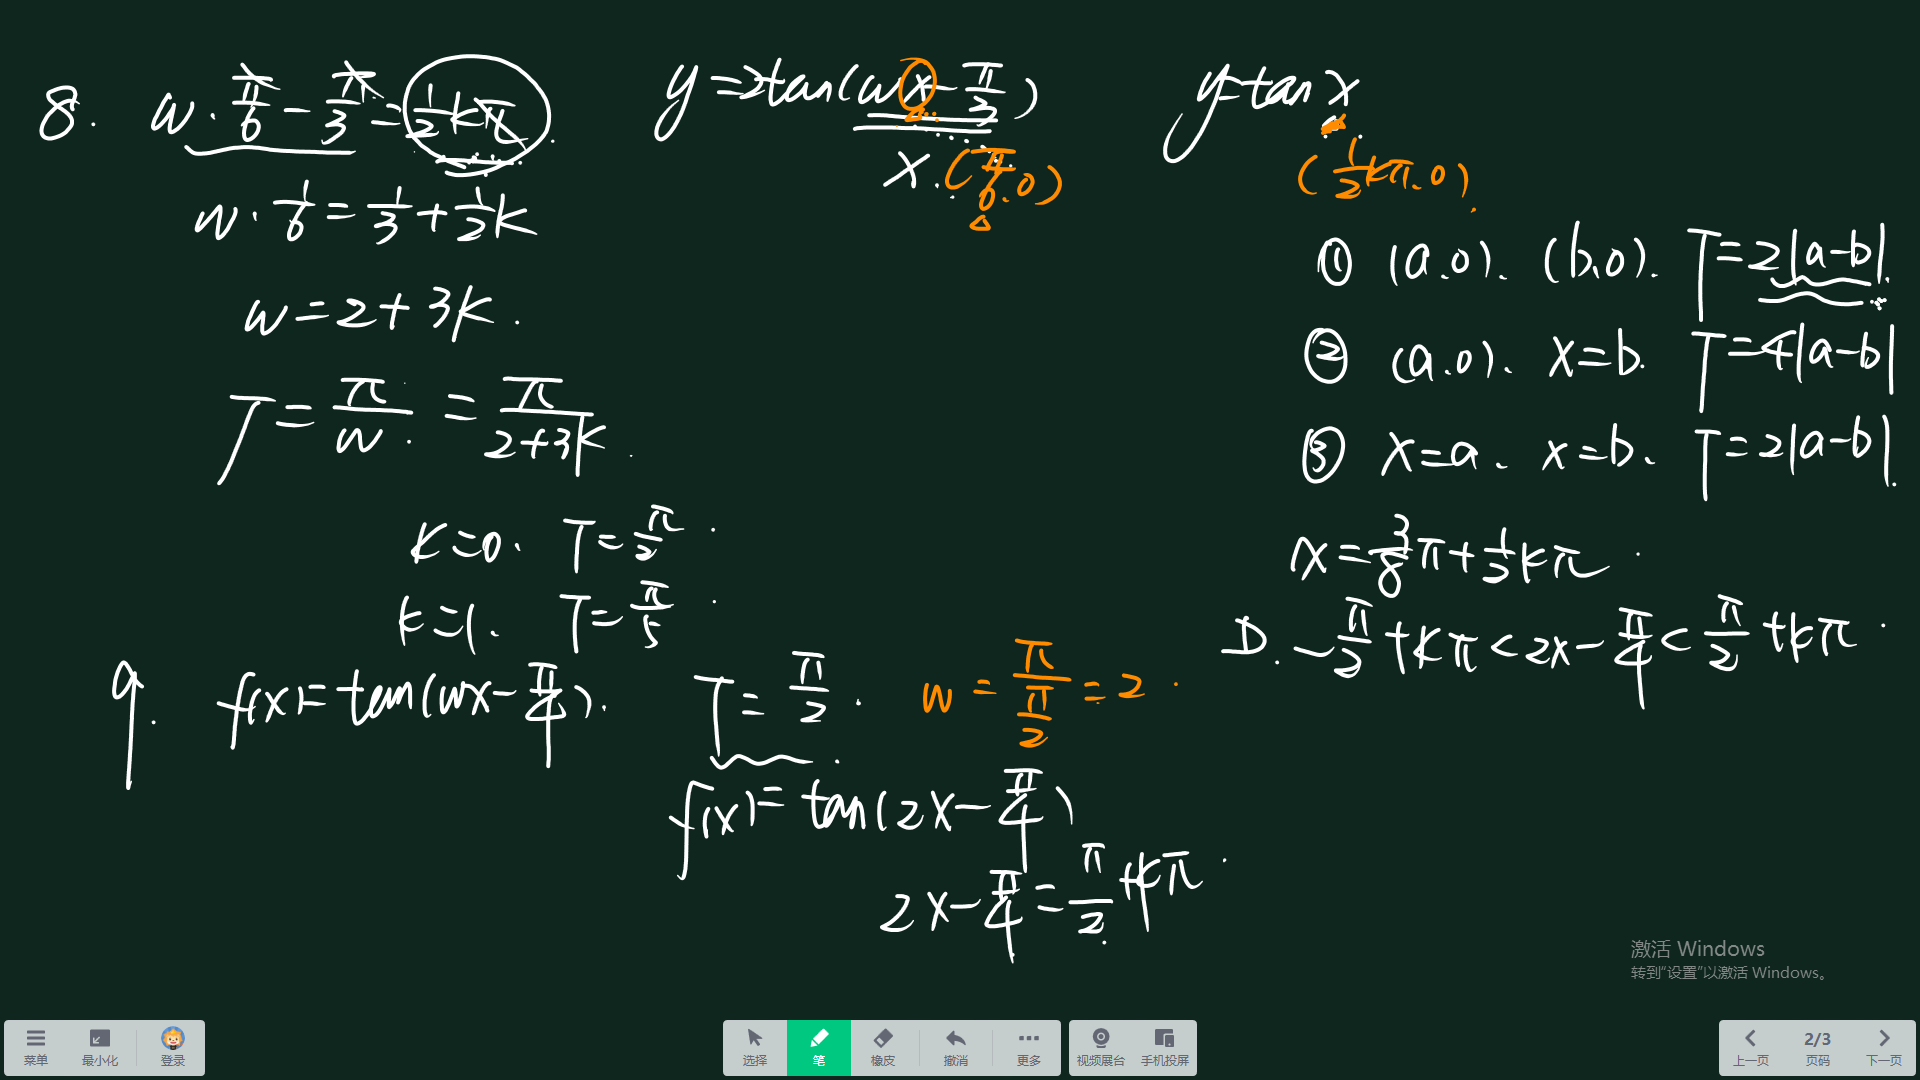 8. w·π/6 − π/3 = 1/2kπ
w·1/6 = 1/3 + 1/2k
w = 2 + 3k.
T = π/w = π/(2+3k)
k=0. T = π/2
k=1. T = π/5
y = 2tan(wx − π/3)
x. (π/6.0)
y=tan x
(1/2kπ.0)
① (a.0). (b.0). T=2|a−b|.
② (a.0). x=b. T=4|a−b|
③ x=a. x=b. T=2|a−b|.
9. f(x)=tan(wx−π/4). T=π/2. w = π/(π/2) = 2
f(x)=tan(2x−π/4)
2x−π/4=π/2+kπ
x=3/8π+1/2kπ
D. −π/2+kπ<2x−π/4<π/2+kπ
激活 Windows
转到“设置”以激活 Windows。
菜单
最小化
登录
选择
笔
橡皮
撤消
更多
视频展台
手机投屏
上一页
2/3
页码
下一页